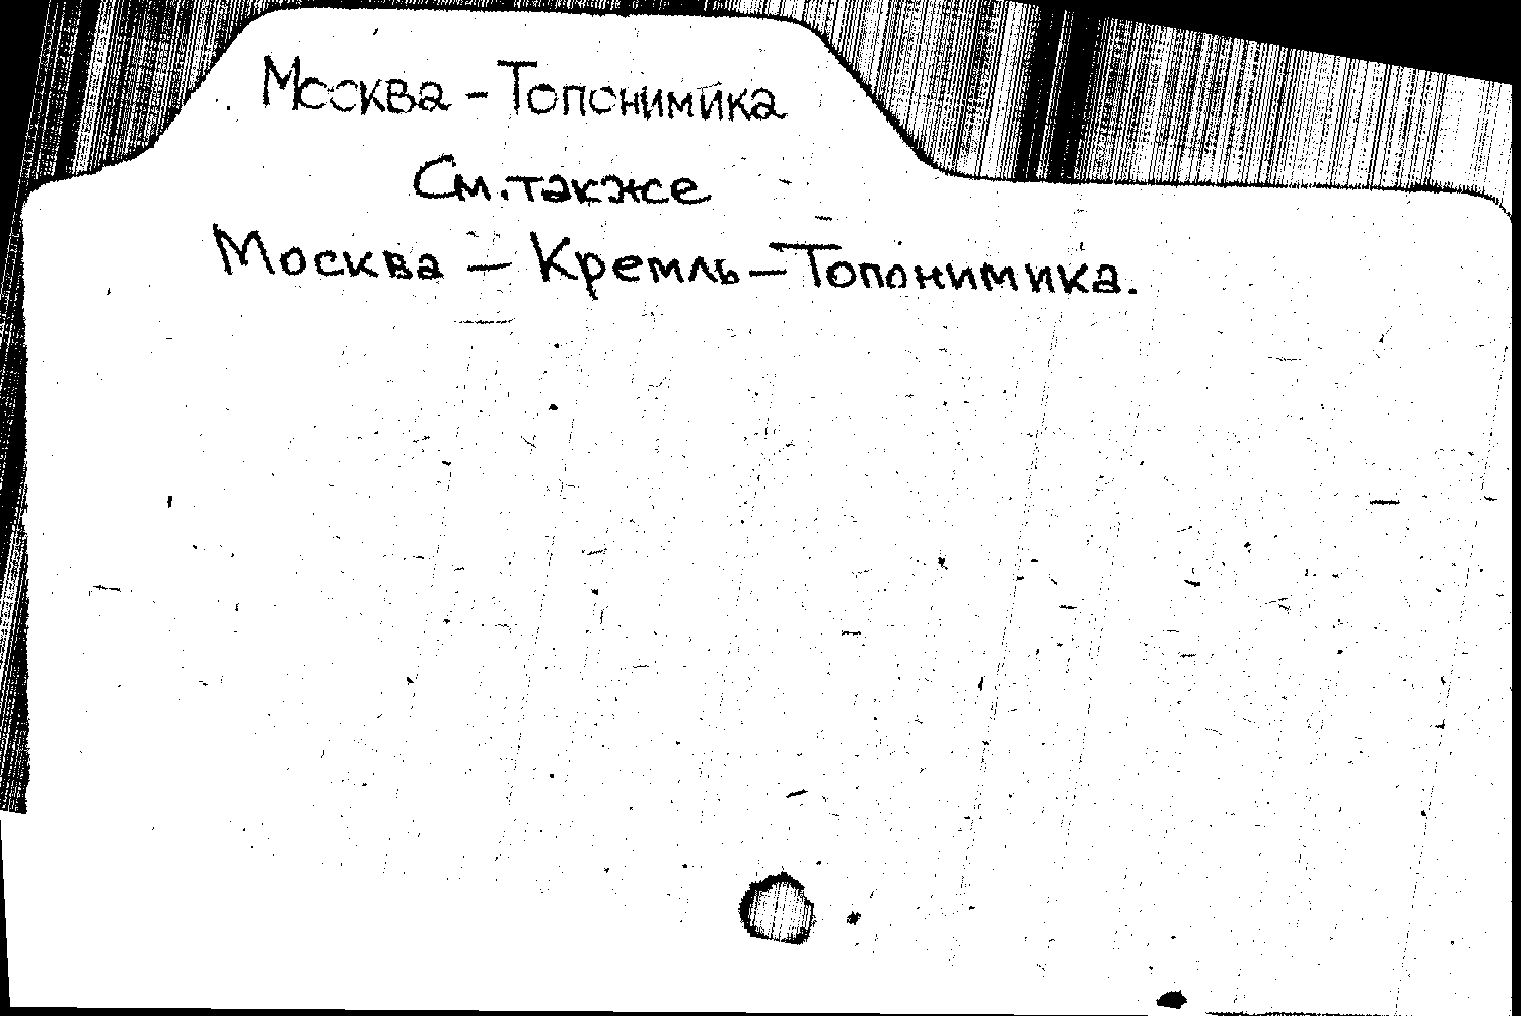 Москва - Топонимика
См. также
Москва - Кремль - Топонимика.